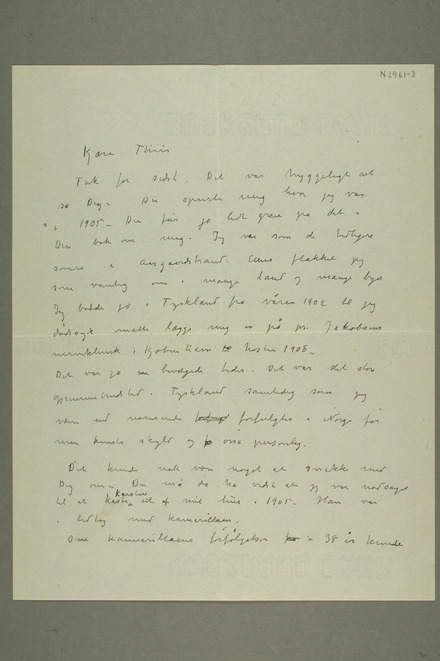 N 2961-2
Kjære Thiis
Tak for sidst. Det var hyggeligt at
se Dig – Du spurte mig hvor jeg var
i 1905 – Du får jo lidt greie på det i
Din bok om mig. Jeg var som de tidligere
somre i Aasgaardstrand. Ellers flakket jeg
som vanlig om i mange land og mange byer
Jeg bodde jo i Tyskland fra våren 1902 til jeg
dødssyk måtte lægge mig in på pr. Jakobsens
nerveklinik i Kjøbenhavn høsten 1908 –
Det var jo bevægede tider. Det var det store
gjennembrud i Tyskland samtidig som jeg
var ut forfulgt i Norge for
min kunsts skyld og også personlig.
Det kunde nok være noget at snakke med
Dig om – Du må da ha vidst at jeg var nødsaget
til at kaste Karsten ut af mit hus i 1905 – Han var
i ledtog med kamarillaen.
Om kamarillaens forfølgelser i 38 år kunde